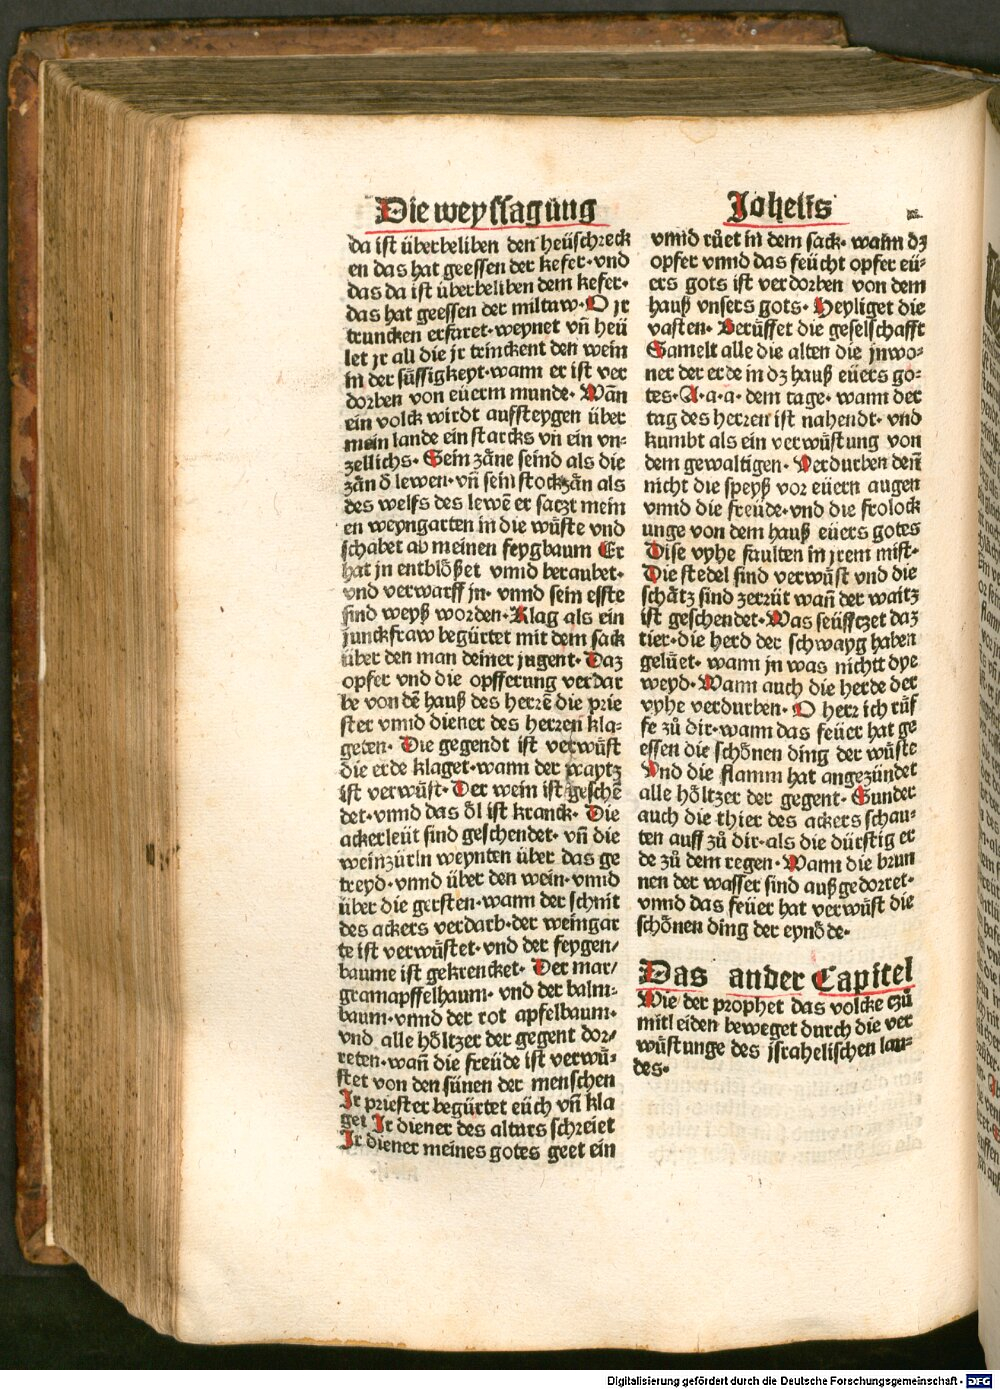 Die weyssagung
Johelis
da ist überbeliben den heüschreck
en das hat geessen der kefer·vnd
das da ist überbeliben dem kefer·
das hat geessen der miltaw·O jr
truncken erfaret·weynet vn̄ heü
let jr all die jr trinckent den wein
in der süssigkeyt·wann er ist ver
dorben von eüerm munde·Wān
ein volck wirdt auffsteygen über
mein lande ein starcks vn̄ ein vn⸗
zellichs·Sein zäne seind als die
zän d̄ lewen·vn̄ sein stockzän als
des welfs des lewē er saczt mein
en weyngarten in die wüste vnd
schabet ab meinen feygbaum Er
hat jn entblößet vnnd beraubet·
vnd verwarff jn·vnnd sein esste
sind weyß worden·Klag als ein
junckfraw begürtet mit dem sack
über den man deiner jugent·Daz
opfer vnd die opfferung verdar
be von dē hauß des herrē die prie
ster vnnd diener des herren kla⸗
geten·Die gegendt ist verwüst
die erde klaget·wann der waytz
ist verwüst·Der wein ist geschē
det·vnnd das öl ist kranck·Die
ackerleüt sind geschendet·vn̄ die
weinzürln weynten über das ge
treyd·vnnd über den wein·vnnd
über die gersten·wann der schnit
des ackers verdarb·der weingar
te ist verwüstet·vnd der feygen/
baume ist gekrencket·Der mar/
gramapffelbaum·vnd der balm⸗
baum·vnnd der rot apfelbaum·
vnd alle höltzer der gegent dor/
reten·wan̄ die freüde ist verwü⸗
stet von den sünen der menschen
Ir priester begürtet eüch vn̄ kla
get Ir diener des altars schreiet
Ir diener meines gotes geet ein
vnnd růet in dem sack·wann dz
opfer vnnd das feücht opfer eü⸗
ers gots ist verdorben von dem
hauß vnsers gots·Heyliget die
vasten·Berüffet die geselschafft
Samelt alle die alten die jnwo⸗
ner der erde in dz hauß eüers go⸗
tes·A·a·a·dem tage·wann der
tag des herren ist nahendt·vnd
kumbt als ein verwüstung von
dem gewaltigen·Verdurben den̄
nicht die speyß vor eüern augen
vnnd die freüde·vnd die frolock
unge von dem hauß eüers gotes
Dise vyhe faulten in jrem mist·
Die stedel sind verwüst vnd die
schätz sind zerrüt wan̄ der waitz
ist geschendet·Was seüfftzet daz
tier·die herd der schwayg haben
gelüet·wann jn was nichtt dye
weyd·Wann auch die herde der
vyhe verdurben·O herr ich rüf
fe zů dir·wann das feüer hat ge
essen die schönen ding der wüste
Vnd die flamm hat angezündet
alle höltzer der gegent·Sunder
auch die thier des ackers schau⸗
ten auff zů dir·als die dürstig er
de zů dem regen·Wann die brun
nen der wasser sind außgedorret·
vnnd das feüer hat verwüst die
schönen ding der eynöde·
Das ander Capitel
Wie der prophet das volcke czů
mitleiden beweget durch die ver
wüstunge des jsrahelischen lan⸗
des·
Digitalisierung gefördert durch die Deutsche Forschungsgemeinschaft - DFG